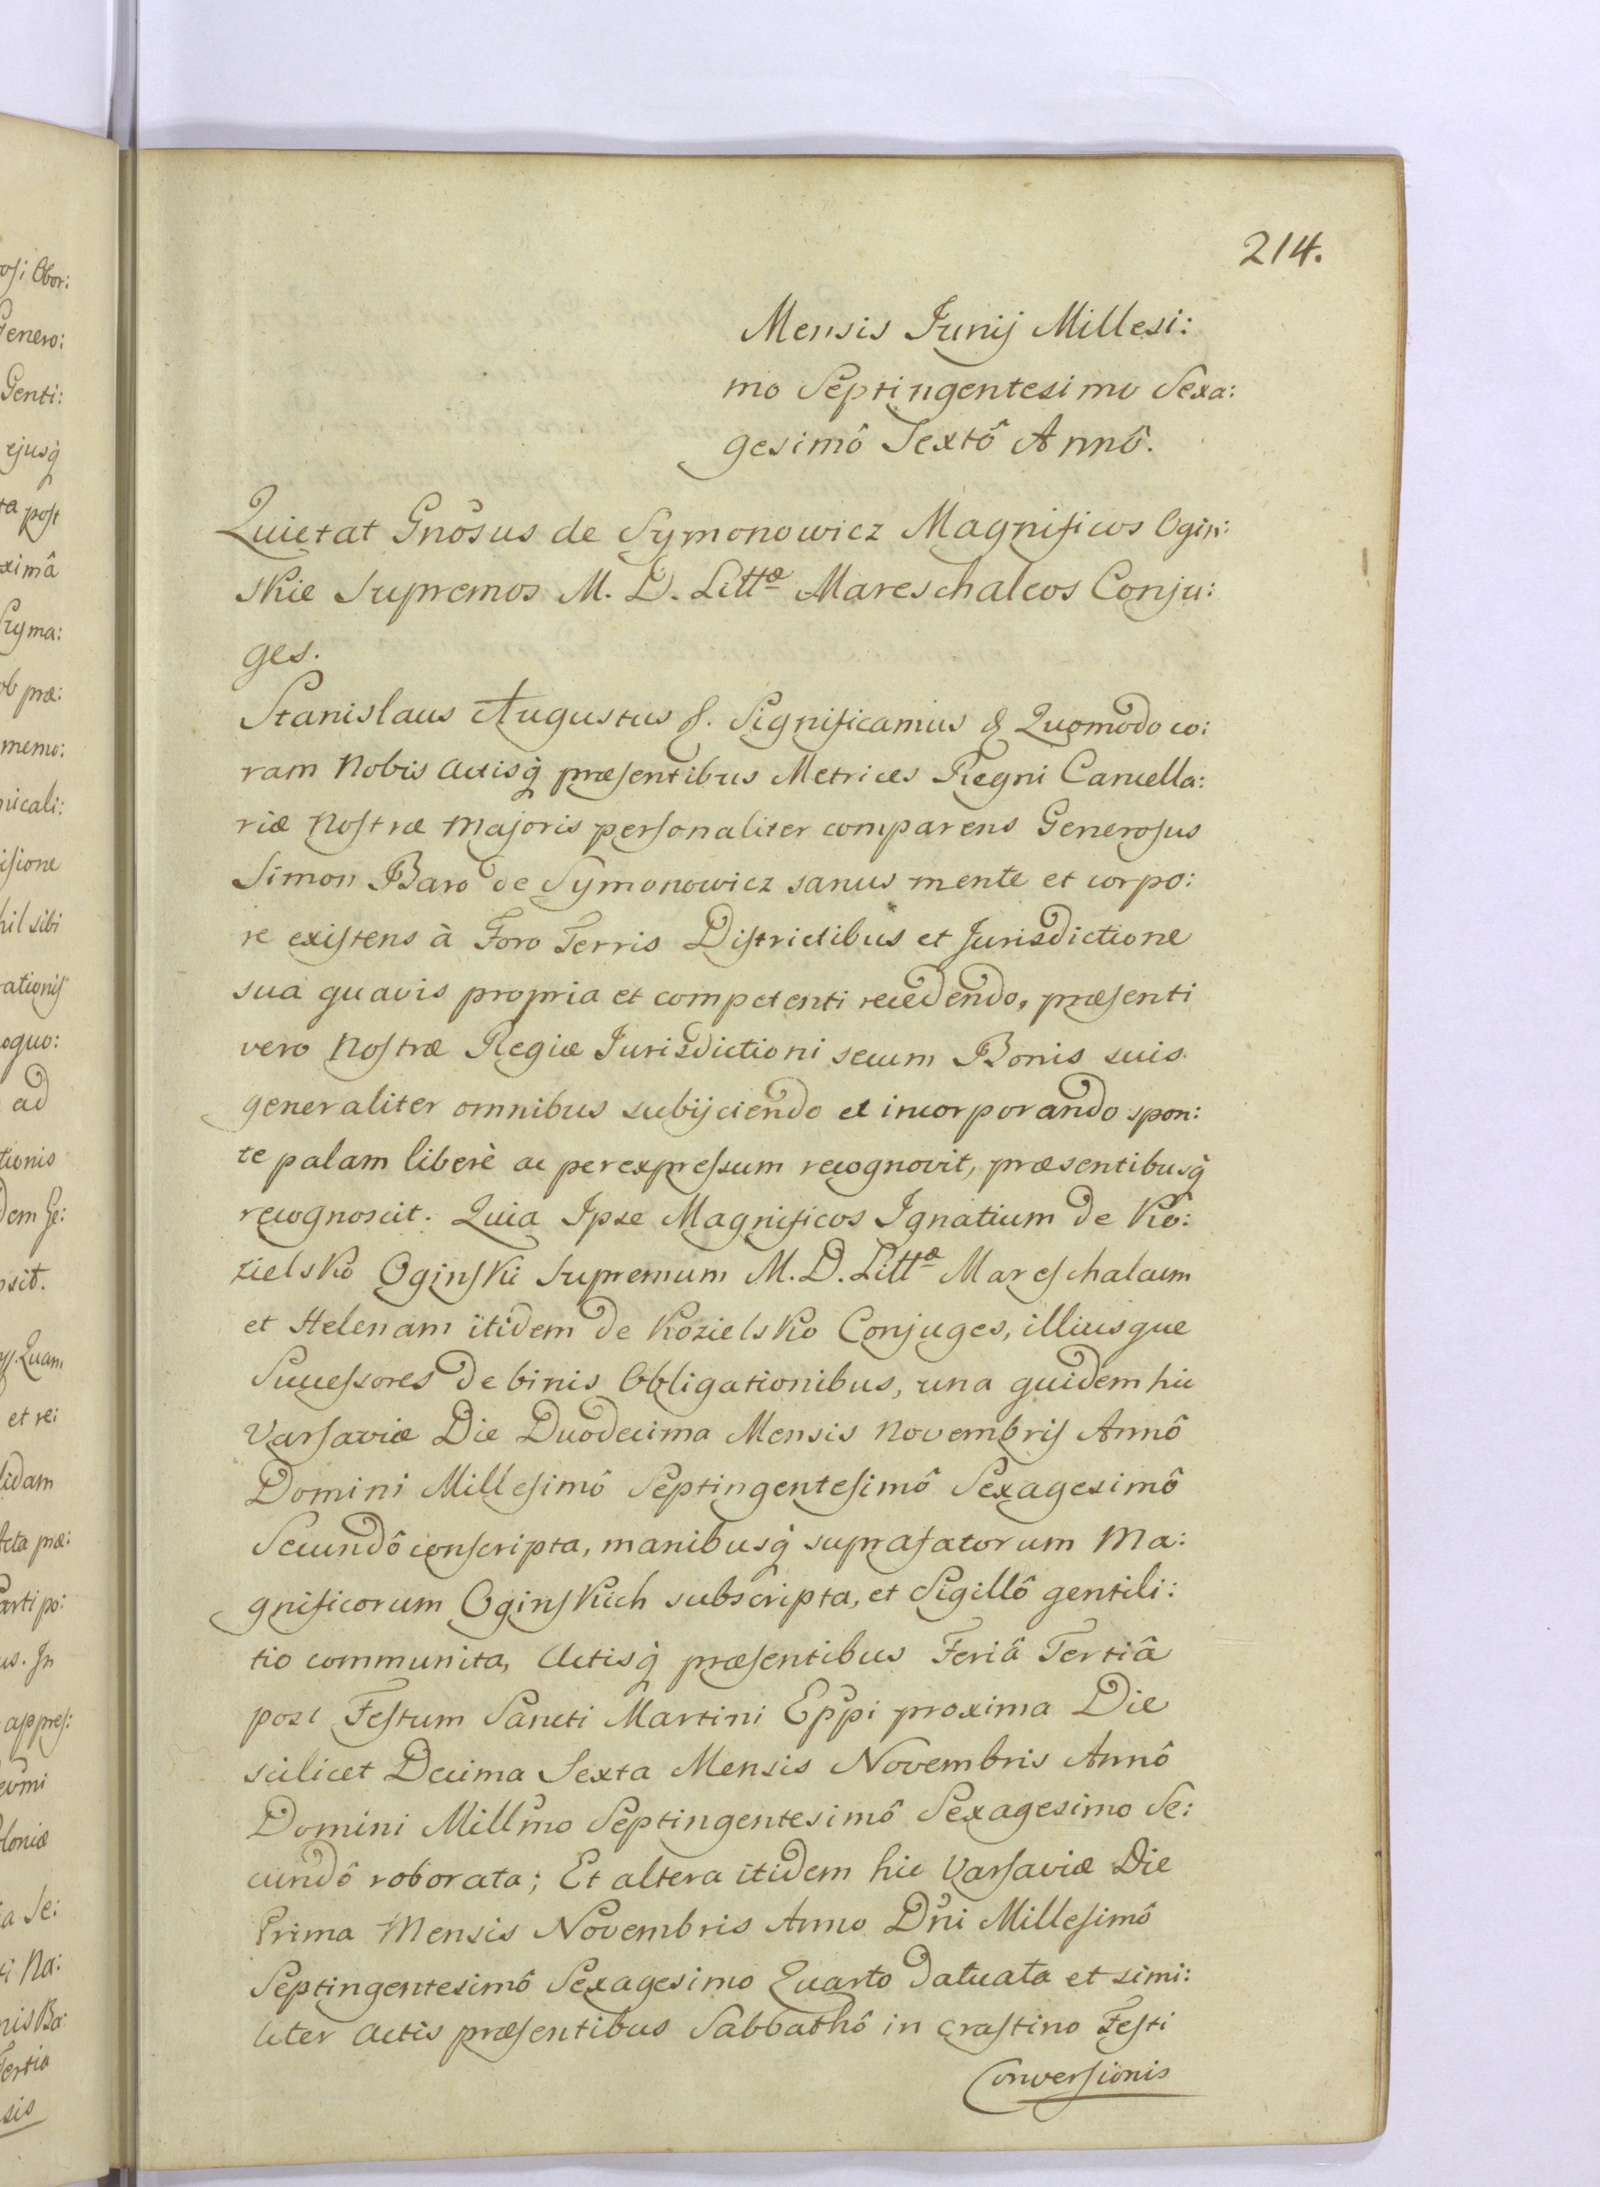 osi Obor:
Genero:
Genti:
ejusq̀
ta post
ximâ
Szyma:
ob præ:
memo:
nicali:
isione
hil sibi
rationis
oquo:
ad
tionis
dem Ge:
osit.
Quam
et re:
lidam
Acta præ:
Parti po:
us. In
appres:
loniæ
ta Se:
ti Na:
nis Ba:
Tertia
sis
214.
Mensis Junij Millesi:
mo Septingentesimo Sexa:
gesimô Sextô Annô.
Quietat Gnosus de Symonowicz Magnificos Ogin:
skie Supremos M. D. Littæ Mareschalcos Conju:
ges.
Stanislaus Augustus &. Significamus & Quomodo co:
ram Nobis Actisq̀ præsentibus Metrices Regni Cancella:
riæ Nostræ Majoris personaliter comparens Generosus
Simon Baro de Symonowicz sanus mente et corpo:
re existens à Foro Terris Districtibus et Jurisdictione
sua quavis propria et competenti recedendo, præsenti
vero Nostræ Regiæ Jurisdictioni secum Bonis suis
generaliter omnibus subijciendo et incorporando spon:
te palam liberè ac per expressum recognovit, præsentibusq̀
recognoscit. Quia Ipse Magnificos Ignatium de Ko:
zielsko Oginski Supremum M. D. Littæ Mareschalcum
et Helenam itidem de Kozielsko Conjuges, illiusque
Successores de binis Obligationibus, una quidem hic
Varsaviæ Die Duodecima Mensis Novembris Annô
Domini Millesimô Septingentesimô Sexagesimô
Secundô conscripta, manibusq̀ suprafatorum Ma:
gnificorum Oginskich subscripta, et Sigillô gentili:
tio communita, Actisq̀ præsentibus Feriâ Tertiâ
post Festum Sancti Martini Eppi proxima Die
scilicet Decima Sexta Mensis Novembris Annô
Domini Millmo Septingentesimô Sexagesimo Se:
cundô roborata; Et altera itidem hic Varsaviæ Die
Prima Mensis Novembris Anno Dni Millesimô
Septingentesimô Sexagesimo Quarto datuata et simi:
liter Actis præsentibus Sabbathô in Crastino Festi
Conversionis